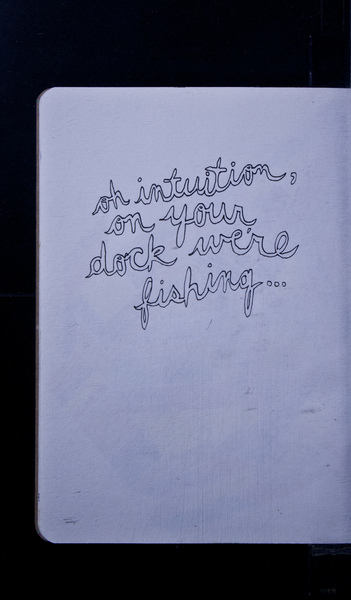 oh intuition,
on your
dock we're
fishing...